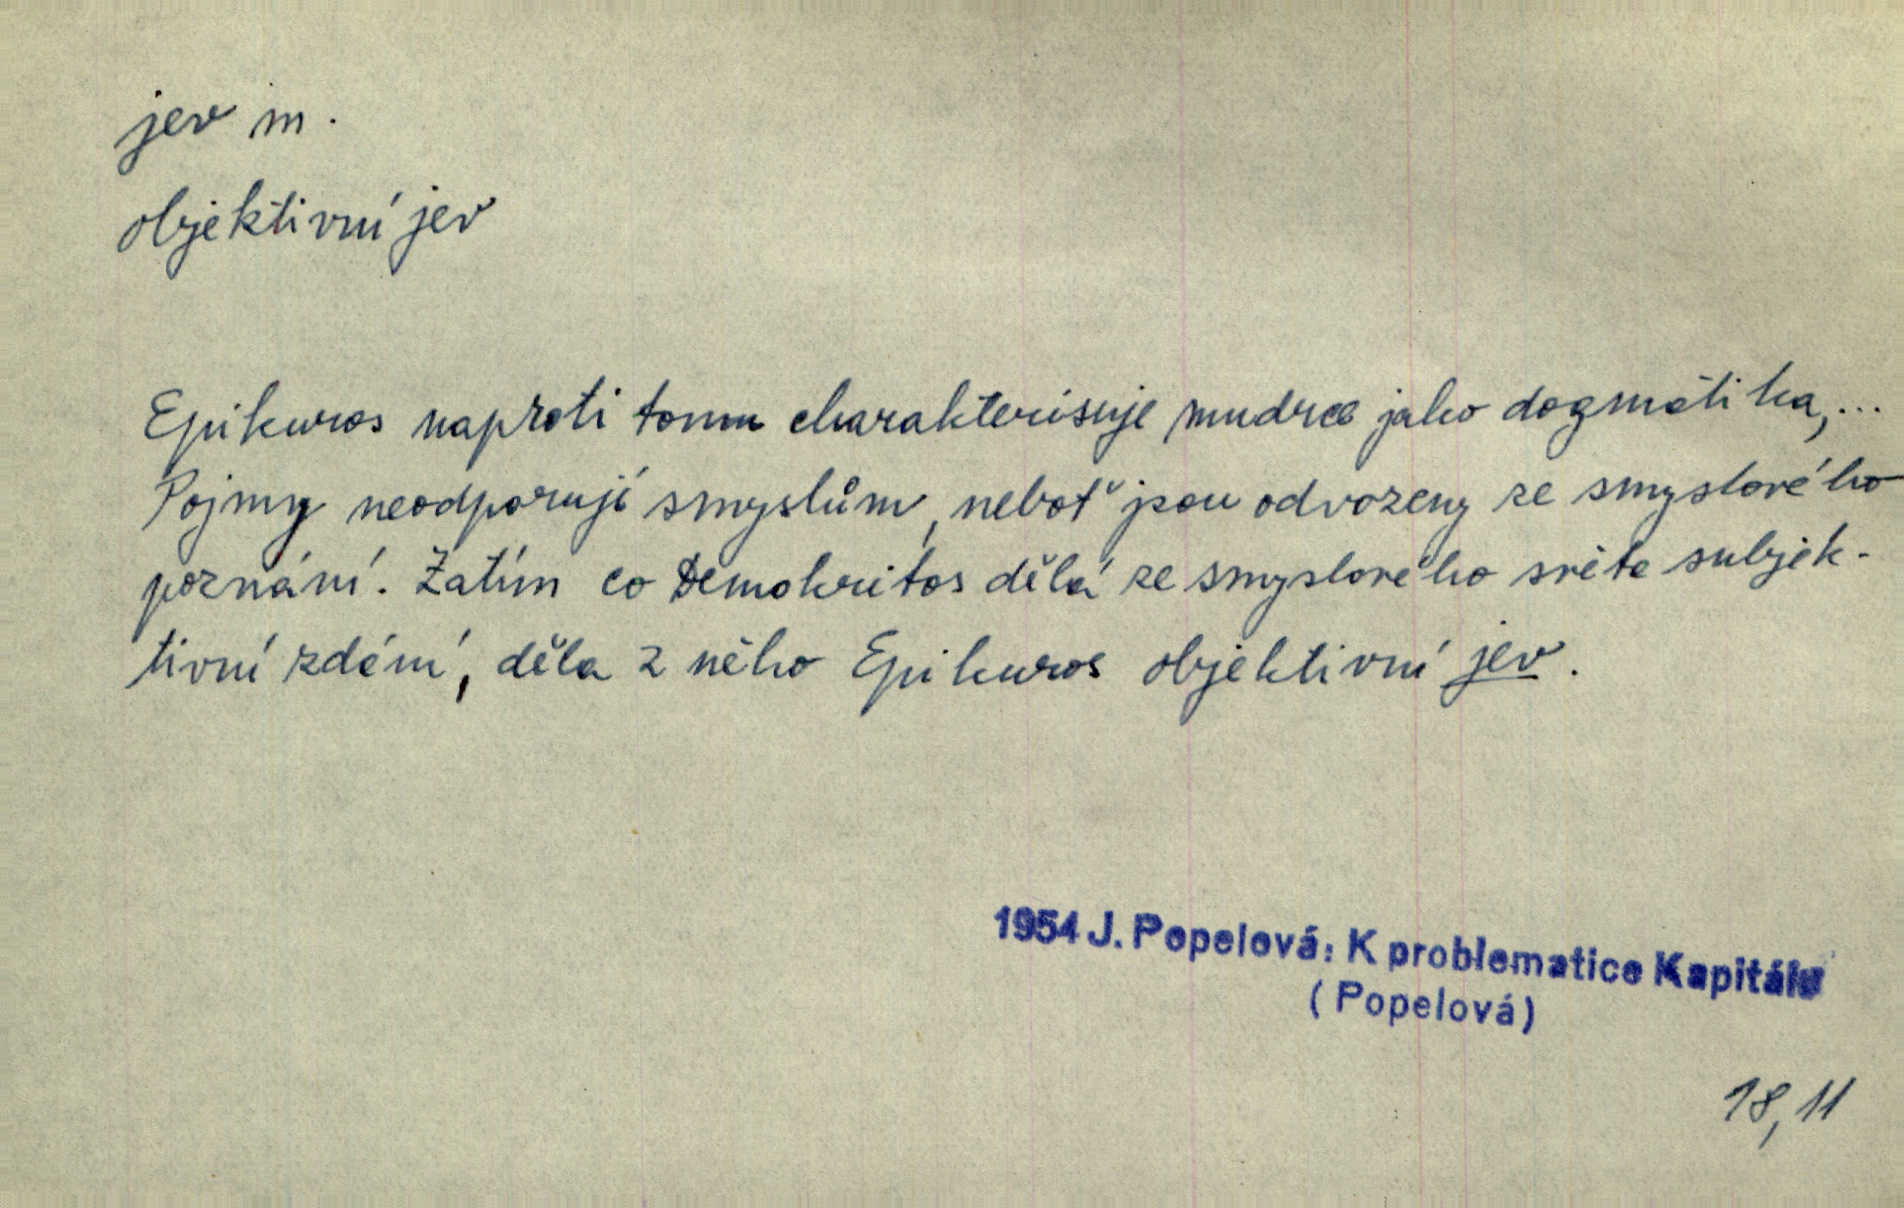 jev m.
objektivní jev
Epikuros naproti tomu charakterisuje mudrce jako dogmatika,...
Pojmy neodporují smyslům, neboť jsou odvozeny ze smyslového
poznání. Zatím co Demokritos dělá ze smyslového světa subjek-
tivní zdání, děla z něho Epikuros objektivní jev.
1954 J. Popelová: K problematice Kapitálu
(Popelová)
18,11